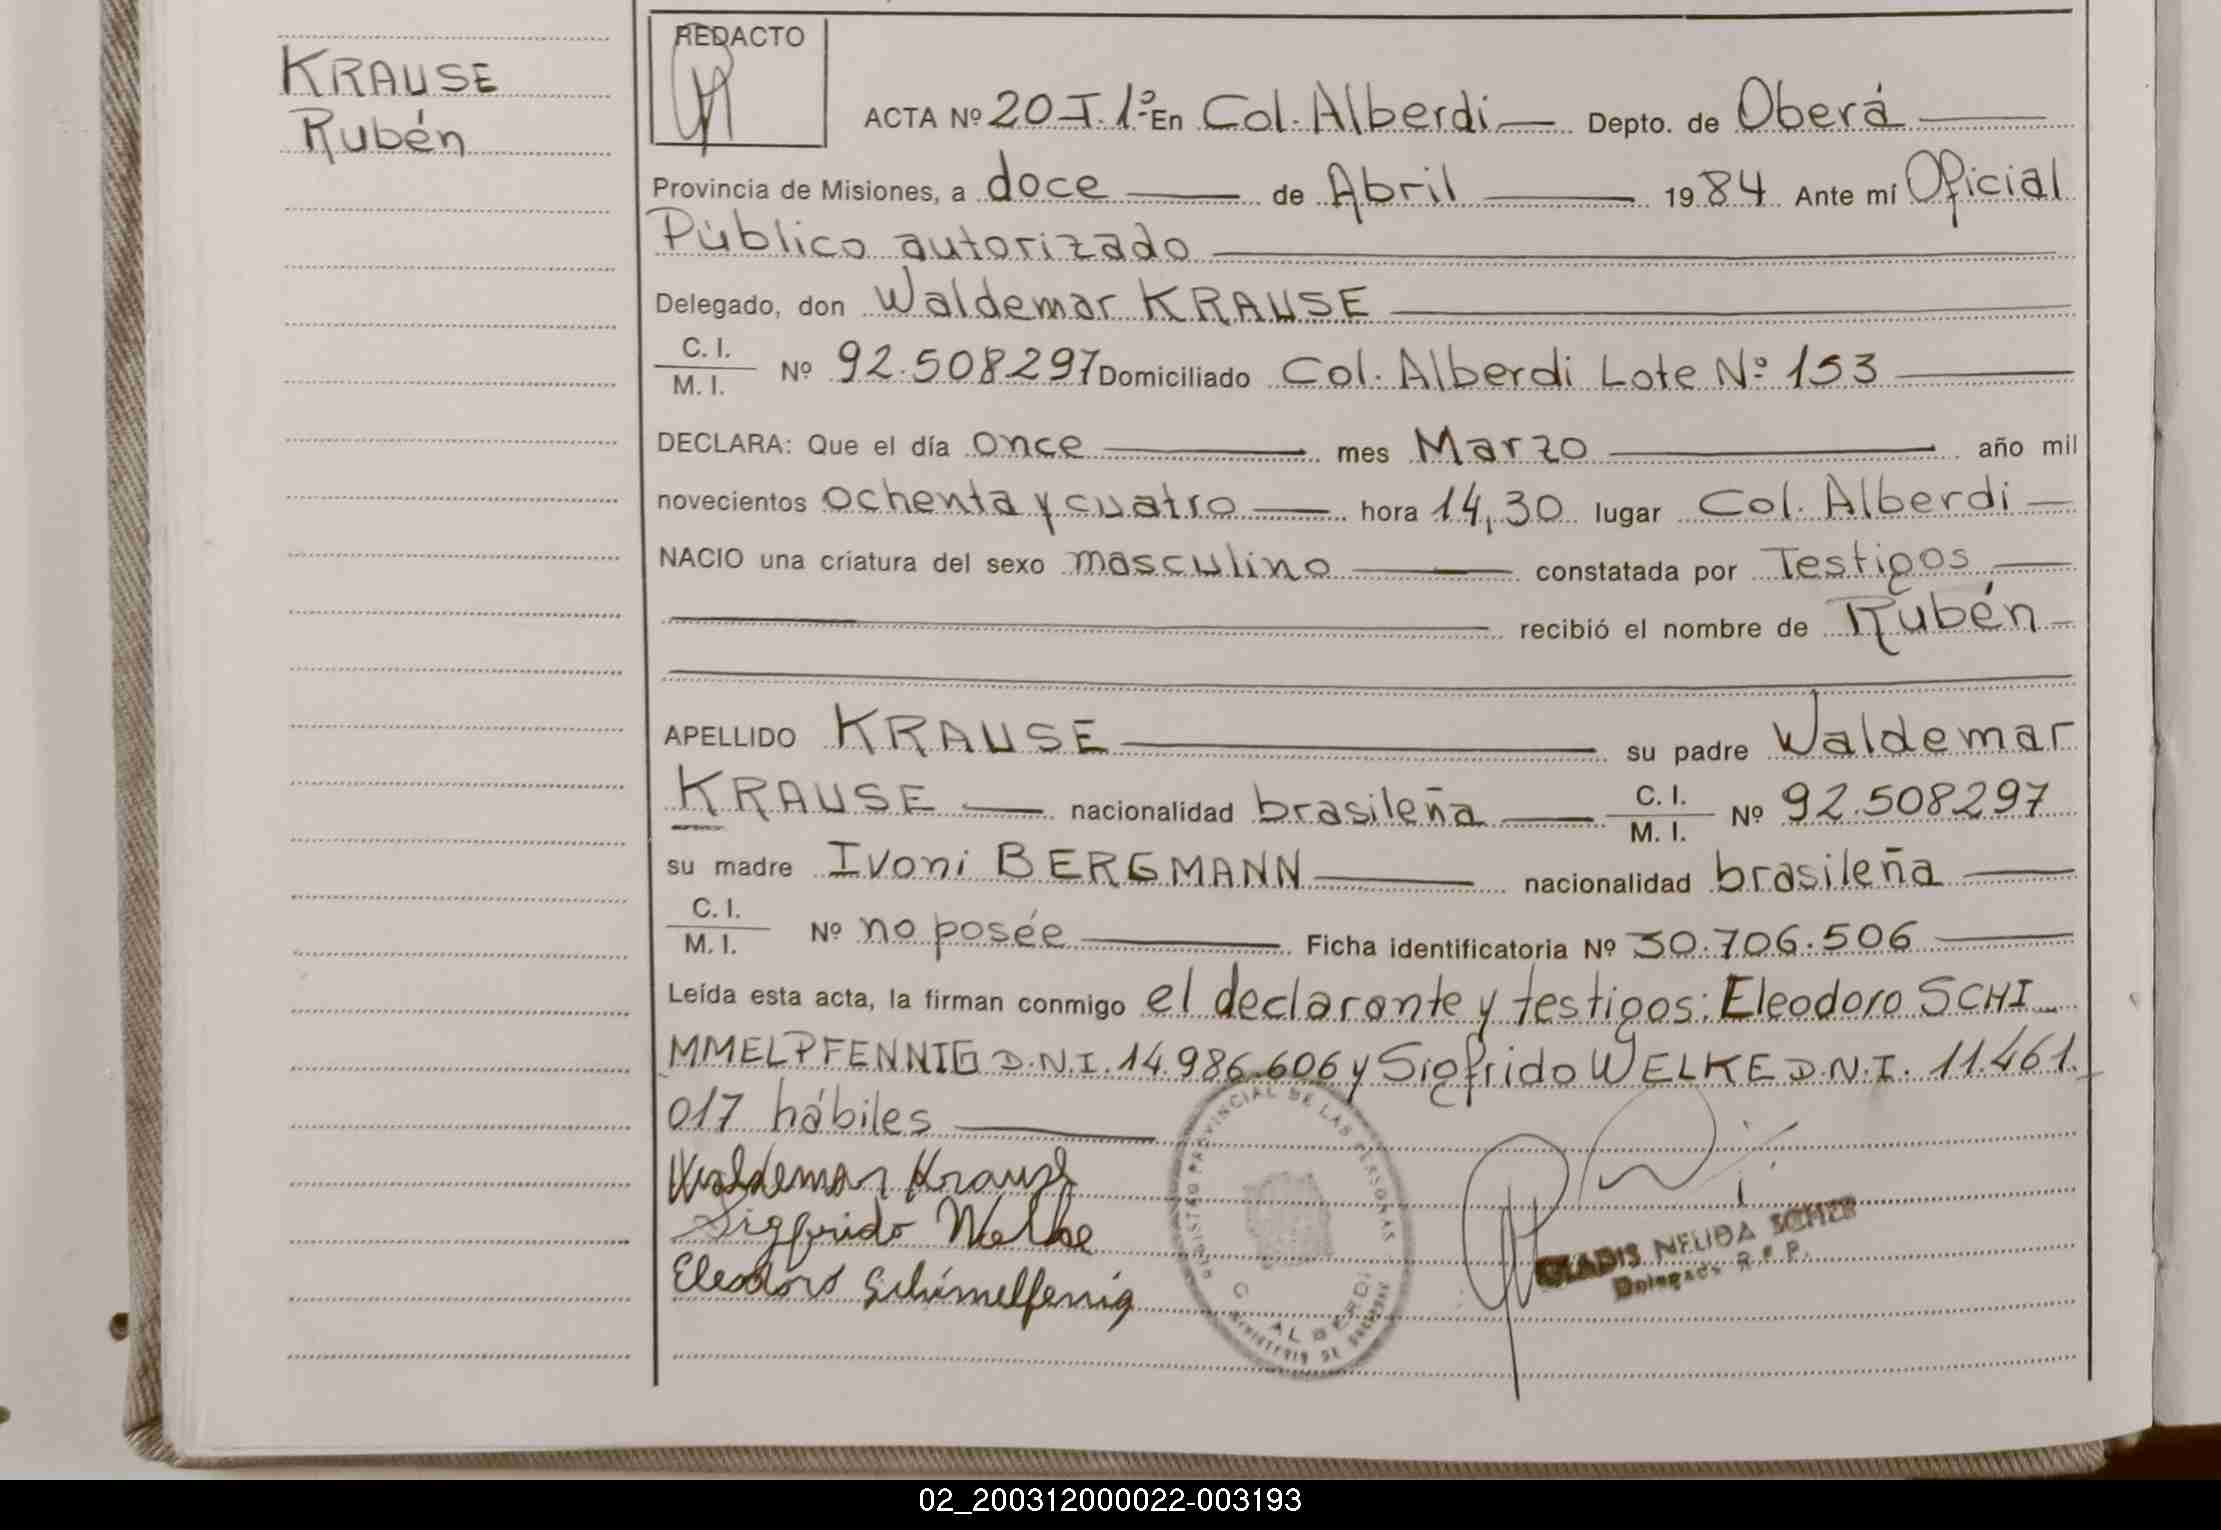 KRAUSE
Rubén
REDACTO
ACTA Nº 20 T. 1º En Col. Alberdi Depto. de Oberá
Provincia de Misiones, a doce de Abril 1984 Ante mí Oficial
Público autorizado
Delegado, don Waldemar KRAUSE
C. I.
M. I.
Nº 92.508297 Domiciliado Col. Alberdi Lote Nº 153
DECLARA: Que el día once mes Marzo año mil
novecientos ochenta y cuatro hora 14,30 lugar Col. Alberdi
NACIO una criatura del sexo masculino constatada por Testigos
recibió el nombre de Rubén
APELLIDO KRAUSE su padre Waldemar
KRAUSE nacionalidad brasileña C. I. M. I. Nº 92.508297
su madre Ivoni BERGMANN nacionalidad brasileña
C. I.
M. I.
Nº no posée Ficha identificatoria Nº 30.706.506
Leída esta acta, la firman conmigo el declarante y testigos: Eleodoro SCHI
MMELPFENNIG D.N.I. 14.986.606 y Sigfrido WELKE D.N.I. 11.461.
017 hábiles
Waldemar Krause
Sigfrido Welke
Eleodoro Schimelfenig
REGISTRO PROVINCIAL DE LAS PERSONAS
C. ALBERDI
MINISTERIO DE
GLADIS NELIDA
Delegada R. P. P.
02_200312000022-003193